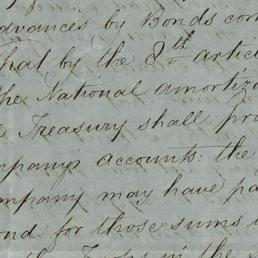 dvances by Bonds con
hat by the 8th articl
he National amortiz
e Treasury shall pro
mpany's accounts: the
mpany may have pa
ond for those sums
in the